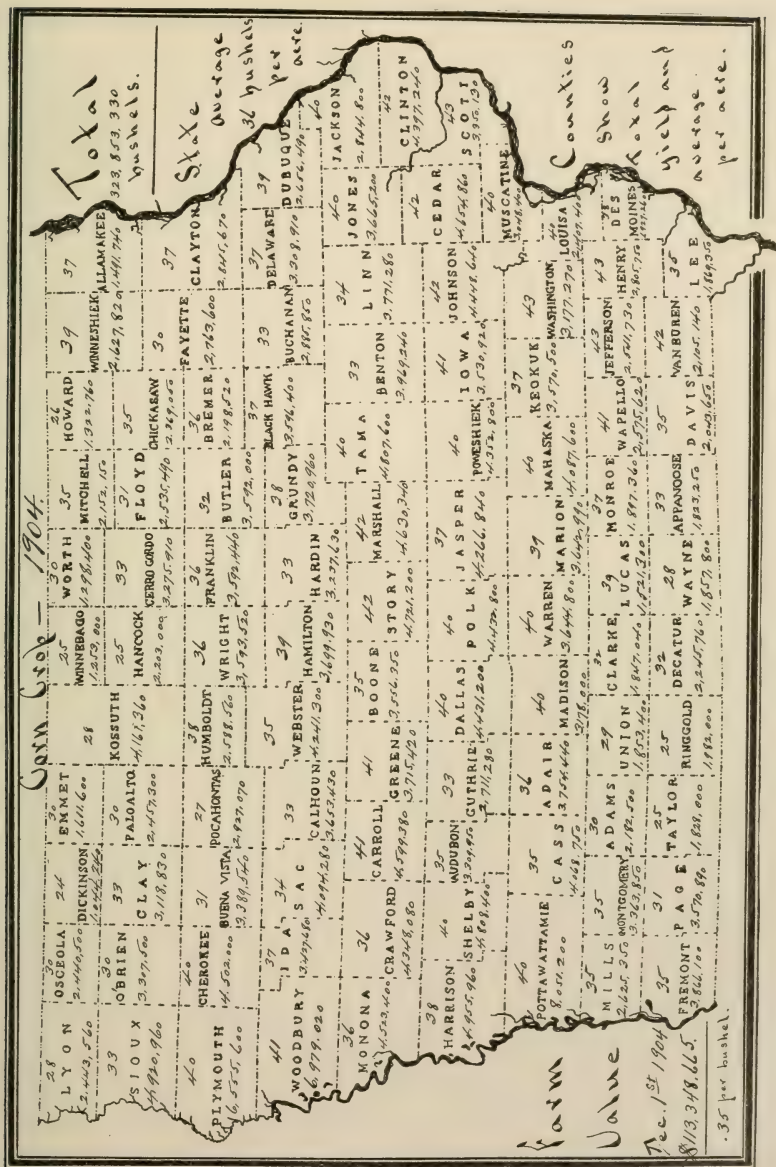 Corn Crop — 1904.
Total
323,853,330
bushels.
State
average
36 bushels
per
acre.
28
LYON
2,443,560
30
OSCEOLA
2,440,500
24
DICKINSON
1,044,240
30
EMMET
1,611,600
28
KOSSUTH
4,161,360
25
WINNEBAGO
1,253,000
30
WORTH
1,298,400
35
MITCHELL
2,152,150
26
HOWARD
1,322,960
39
WINNESHIEK
2,627,820
37
ALLAMAKEE
1,491,740
33
SIOUX
4,920,960
30
O'BRIEN
3,307,500
33
CLAY
3,118,830
30
PALO ALTO
2,457,300
25
HANCOCK
2,203,000
33
CERRO GORDO
3,275,910
31
FLOYD
2,535,490
35
CHICKASAW
2,369,050
30
FAYETTE
2,763,600
37
CLAYTON
2,845,670
40
PLYMOUTH
6,555,600
40
CHEROKEE
4,502,000
31
BUENA VISTA
3,389,540
27
POCAHONTAS
2,927,070
38
HUMBOLDT
2,588,560
36
WRIGHT
3,593,520
36
FRANKLIN
3,592,440
32
BUTLER
3,592,000
36
BREMER
2,198,520
41
WOODBURY
6,979,020
37
IDA
3,427,680
34
SAC
4,094,280
33
CALHOUN
3,653,430
35
WEBSTER
4,241,300
39
HAMILTON
3,699,930
33
HARDIN
3,237,630
38
GRUNDY
3,720,960
37
BLACK HAWK
3,596,400
33
BUCHANAN
2,885,850
37
DELAWARE
3,308,910
39
DUBUQUE
2,656,490
36
MONONA
4,523,400
36
CRAWFORD
4,348,080
41
CARROLL
4,599,380
41
GREENE
3,715,420
35
BOONE
3,556,350
42
STORY
4,721,200
42
MARSHALL
4,630,340
40
TAMA
4,807,600
33
BENTON
3,969,240
34
LINN
3,771,280
40
JONES
3,665,200
40
JACKSON
2,844,800
42
CLINTON
4,397,240
38
HARRISON
4,955,960
40
SHELBY
4,808,400
35
AUDUBON
3,309,950
33
GUTHRIE
2,711,280
40
DALLAS
4,431,200
40
POLK
4,432,800
37
JASPER
4,266,840
40
POWESHIEK
4,352,800
41
IOWA
3,530,920
42
JOHNSON
4,448,640
42
CEDAR
4,654,860
43
SCOTT
3,350,130
40
MUSCATINE
3,048,400
40
POTTAWATTAMIE
8,051,200
35
CASS
4,068,750
36
ADAIR
3,754,440
40
MADISON
3,178,000
40
WARREN
3,644,800
39
MARION
3,642,990
40
MAHASKA
4,087,600
37
KEOKUK
3,570,500
43
WASHINGTON
3,177,270
40
LOUISA
2,407,400
35
MILLS
2,625,350
35
MONTGOMERY
3,363,850
30
ADAMS
2,182,500
29
UNION
1,853,400
32
CLARKE
1,847,040
39
LUCAS
1,521,300
37
MONROE
1,897,360
41
WAPELLO
2,575,620
43
JEFFERSON
2,561,730
43
HENRY
2,805,750
38
DES
MOINES
35
FREMONT
3,866,100
31
PAGE
3,570,890
25
TAYLOR
1,828,000
25
RINGGOLD
1,982,000
32
DECATUR
2,245,760
28
WAYNE
1,857,800
33
APPANOOSE
1,823,250
35
DAVIS
2,043,650
42
VAN BUREN
2,105,140
35
LEE
1,869,350
Farm
Value
Dec. 1st 1904
$113,348,665,
.35 per bushel.
Counties
Show
Total
yield and
average
per acre.